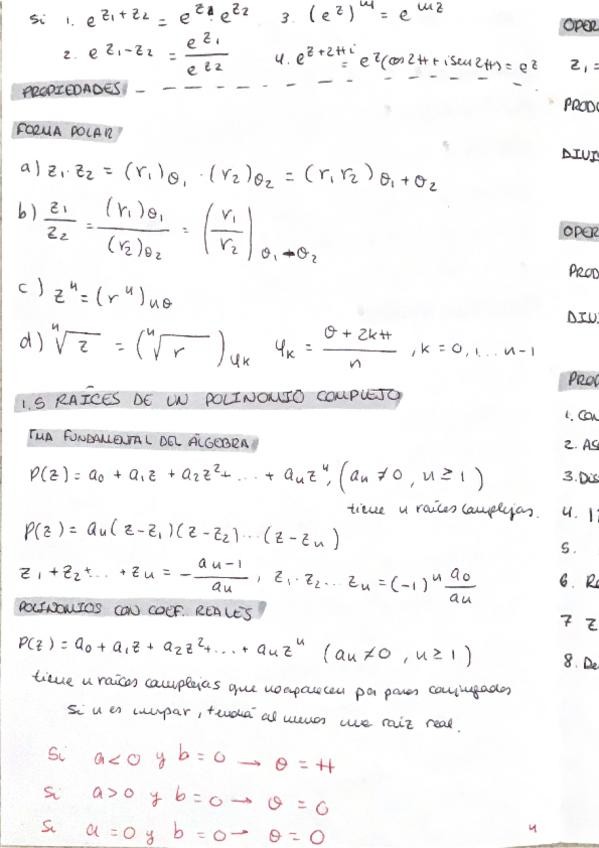 Si 1. e^{z1+z2} = e^{z1}·e^{z2} 3. (e^z)^n = e^{nz}
2. e^{z1-z2} = e^{z1}/e^{z2} 4. e^{z+2πi} = e^z(cos2π+isen2π) = e^z
PROPIEDADES
FORMA POLAR
a) z1·z2 = (r1)θ1 · (r2)θ2 = (r1 r2)θ1+θ2
b) z1/z2 = (r1)θ1/(r2)θ2 = (r1/r2)θ1-θ2
c) z^n = (r^n)nθ
d) ⁿ√z = (ⁿ√r)φk φk = (θ+2kπ)/n , k = 0, 1... n-1
1.5 RAÍCES DE UN POLINOMIO COMPLEJO
TMA FUNDAMENTAL DEL ÁLGEBRA
P(z) = a0 + a1z + a2z²+ ... + anz^n, (an≠0, n≥1)
tiene n raíces complejas.
P(z) = an(z-z1)(z-z2)...(z-zn)
z1+z2+... +zn = -an-1/an , z1·z2... zn = (-1)^n a0/an
POLINOMIOS CON COEF. REALES
P(z) = a0 + a1z + a2z²+...+ anz^n (an≠0, n≥1)
tiene n raíces complejas que no aparecen por pares conjugados
Si n es impar, tendrá al menos una raíz real.
Si a<0 y b=0 → θ = π
Si a>0 y b=0 → θ = 0
Si a=0 y b=0 → θ = 0
4
OPER
z1 =
PRODU
DIVIS
OPER
PROD
DIVI
PROP
1. CON
2. AS
3. DIS
4. 1
5.
6. Re
7 z
8. De